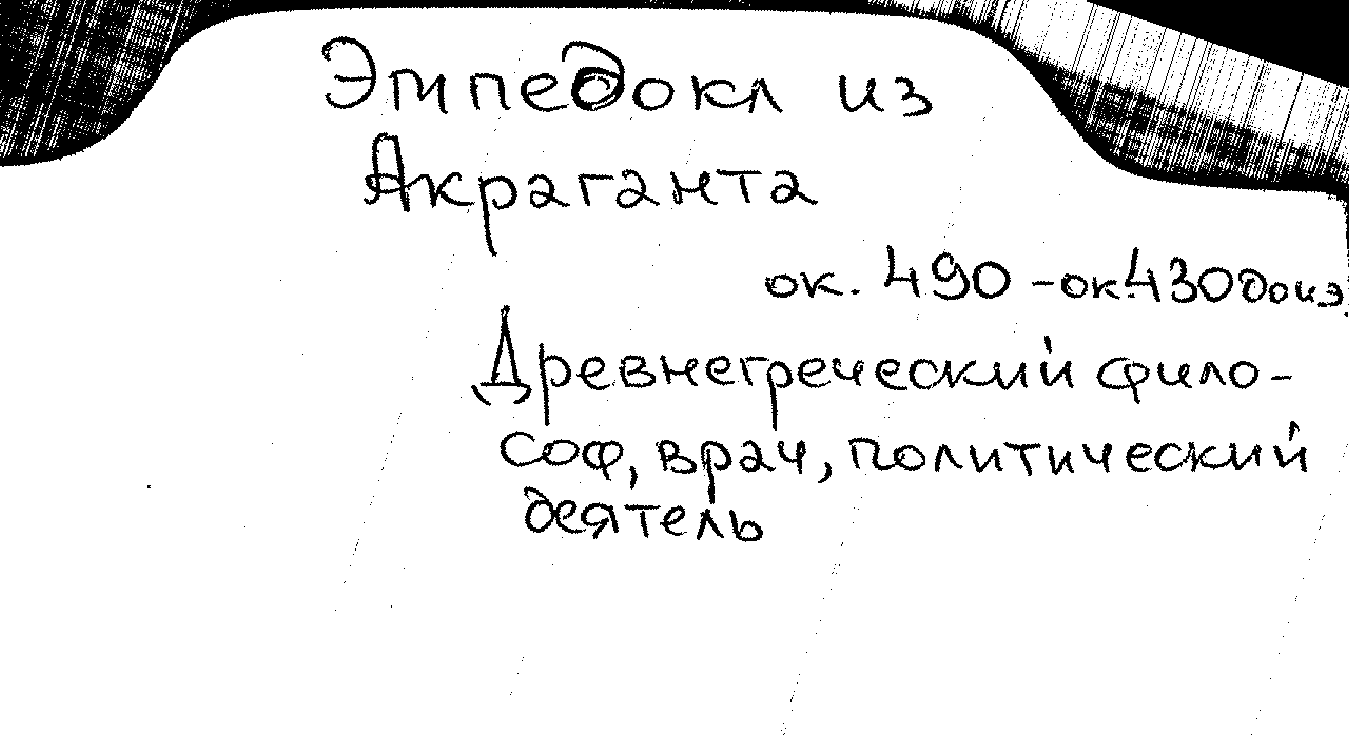 Эмпедокл из
Акраганта
ок. 490 - ок. 430 до н э.
Древнегреческий фило-
соф, врач, политический
деятель